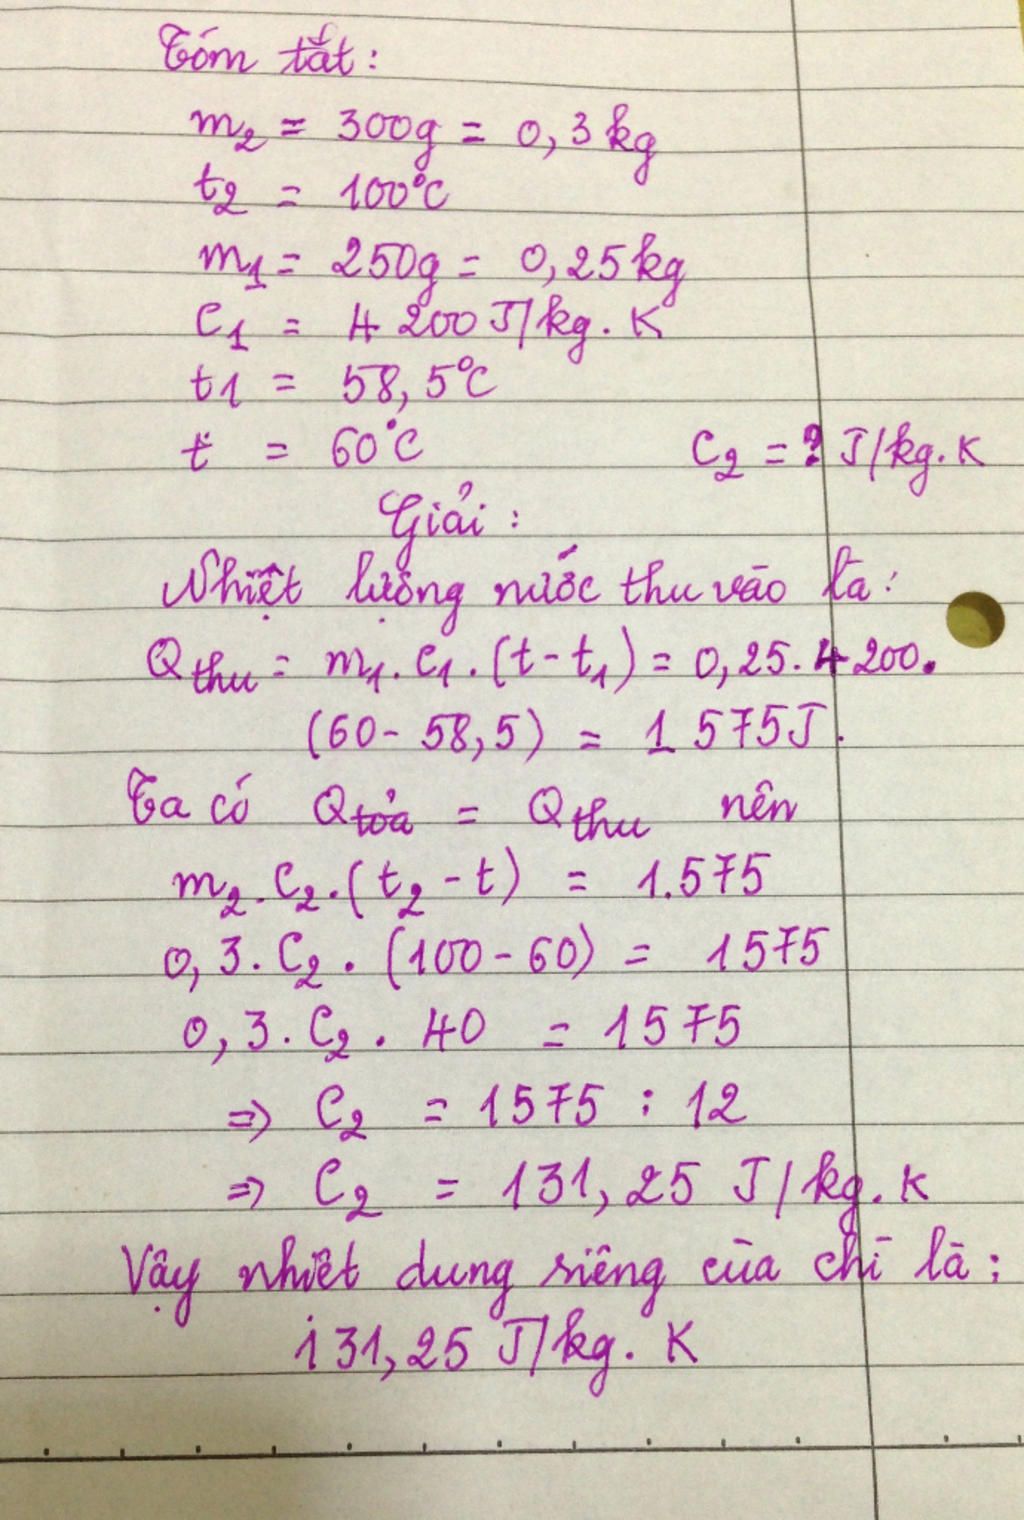 Tóm tắt:
m₂ = 300g = 0,3 kg
t₂ = 100°C
m₁ = 250g = 0,25 kg
C₁ = 4 200 J/kg.K
t₁ = 58,5°C
t = 60°C C₂ = ? J/kg.K
Giải:
Nhiệt lượng nước thu vào là:
Qthu = m₁.C₁.(t - t₁) = 0,25.4 200.
(60 - 58,5) = 1 575J.
Ta có Qtỏa = Qthu nên
m₂.C₂.(t₂ - t) = 1.575
0,3.C₂.(100 - 60) = 1575
0,3.C₂.40 = 1575
=> C₂ = 1575 : 12
=> C₂ = 131,25 J/kg.K
Vậy nhiệt dung riêng của chì là:
131,25 J/kg.K